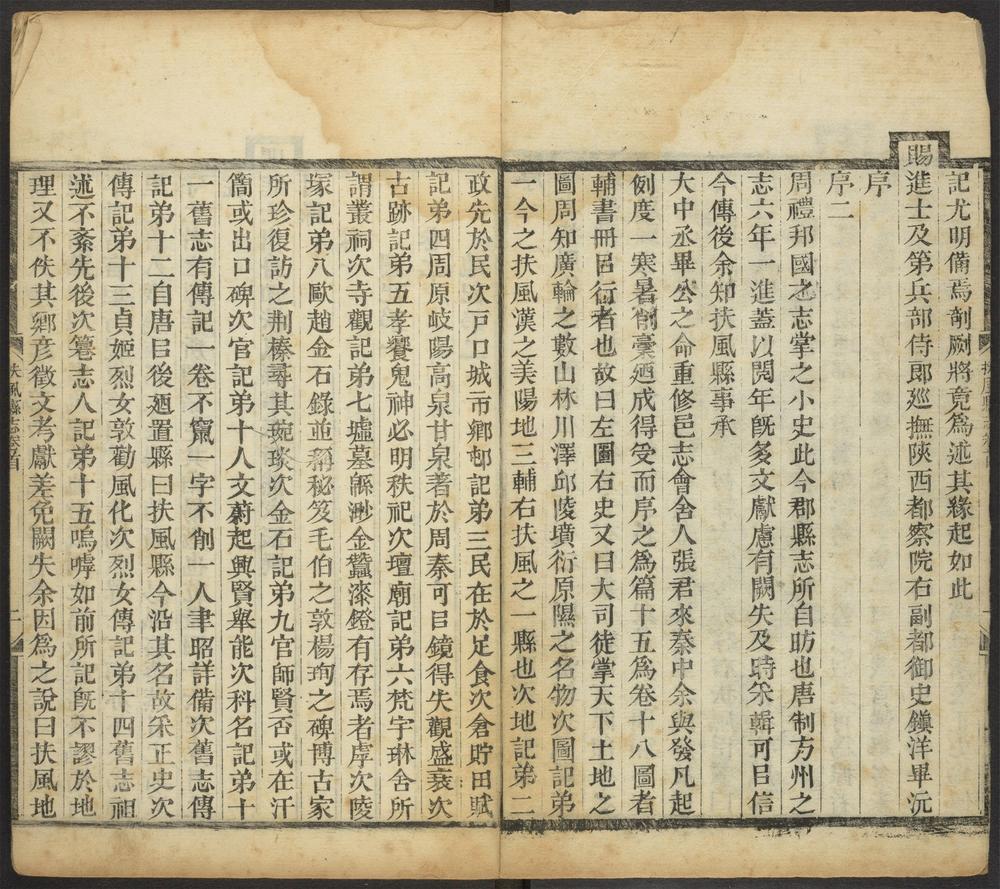 記尤明備焉剞劂將竟爲述其緣起如此
賜
進士及第兵部侍郎巡撫陝西都察院右副都御史鎭洋畢沅
序
序二
周禮邦國之志掌之小史此今郡縣志所自昉也唐制方州之
志六年一進蓋以閱年旣多文獻慮有闕失及時采輯可㠯信
今傳後余知扶風縣事承
大中丞畢公之命重修邑志會舍人張君來秦中余與發凡起
例度一寒暑削稾廼成得受而序之爲篇十五爲卷十八圖者
輔書冊㠯行者也故曰左圖右史又曰大司徒掌天下土地之
圖周知廣輪之數山林川澤邱陵墳衍原隰之名物次圖記弟
一今之扶風漢之美陽地三輔右扶風之一縣也次地記弟二
政先於民次戸口城市鄉邨記弟三民在於足食次倉貯田賦
記弟四周原岐陽高泉甘泉著於周秦可㠯鏡得失觀盛衰次
古跡記弟五孝饗鬼神必明秩祀次壇廟記弟六梵宇琳舍所
謂叢祠次寺觀記弟七墟墓緜渺金蠶漆鐙有存焉者虖次陵
冢記弟八歐趙金石錄並稱秘笈毛伯之敦楊珣之碑博古家
所珍復訪之荆榛尋其琬琰次金石記弟九官師賢否或在汗
簡或出口碑次官記弟十人文蔚起興賢舉能次科名記弟十
一舊志有傳記一卷不竄一字不削一人聿昭詳備次舊志傳
記弟十二自唐㠯後廼置縣曰扶風縣今沿其名故采正史次
傳記弟十三貞姬烈女敦勸風化次烈女傳記弟十四舊志祖
述不紊先後次簒志人記弟十五嗚嘑如前所記旣不謬於地
理又不佚其鄉彦徵文考獻差免闕失余因爲之說曰扶風地
扶風縣志卷首